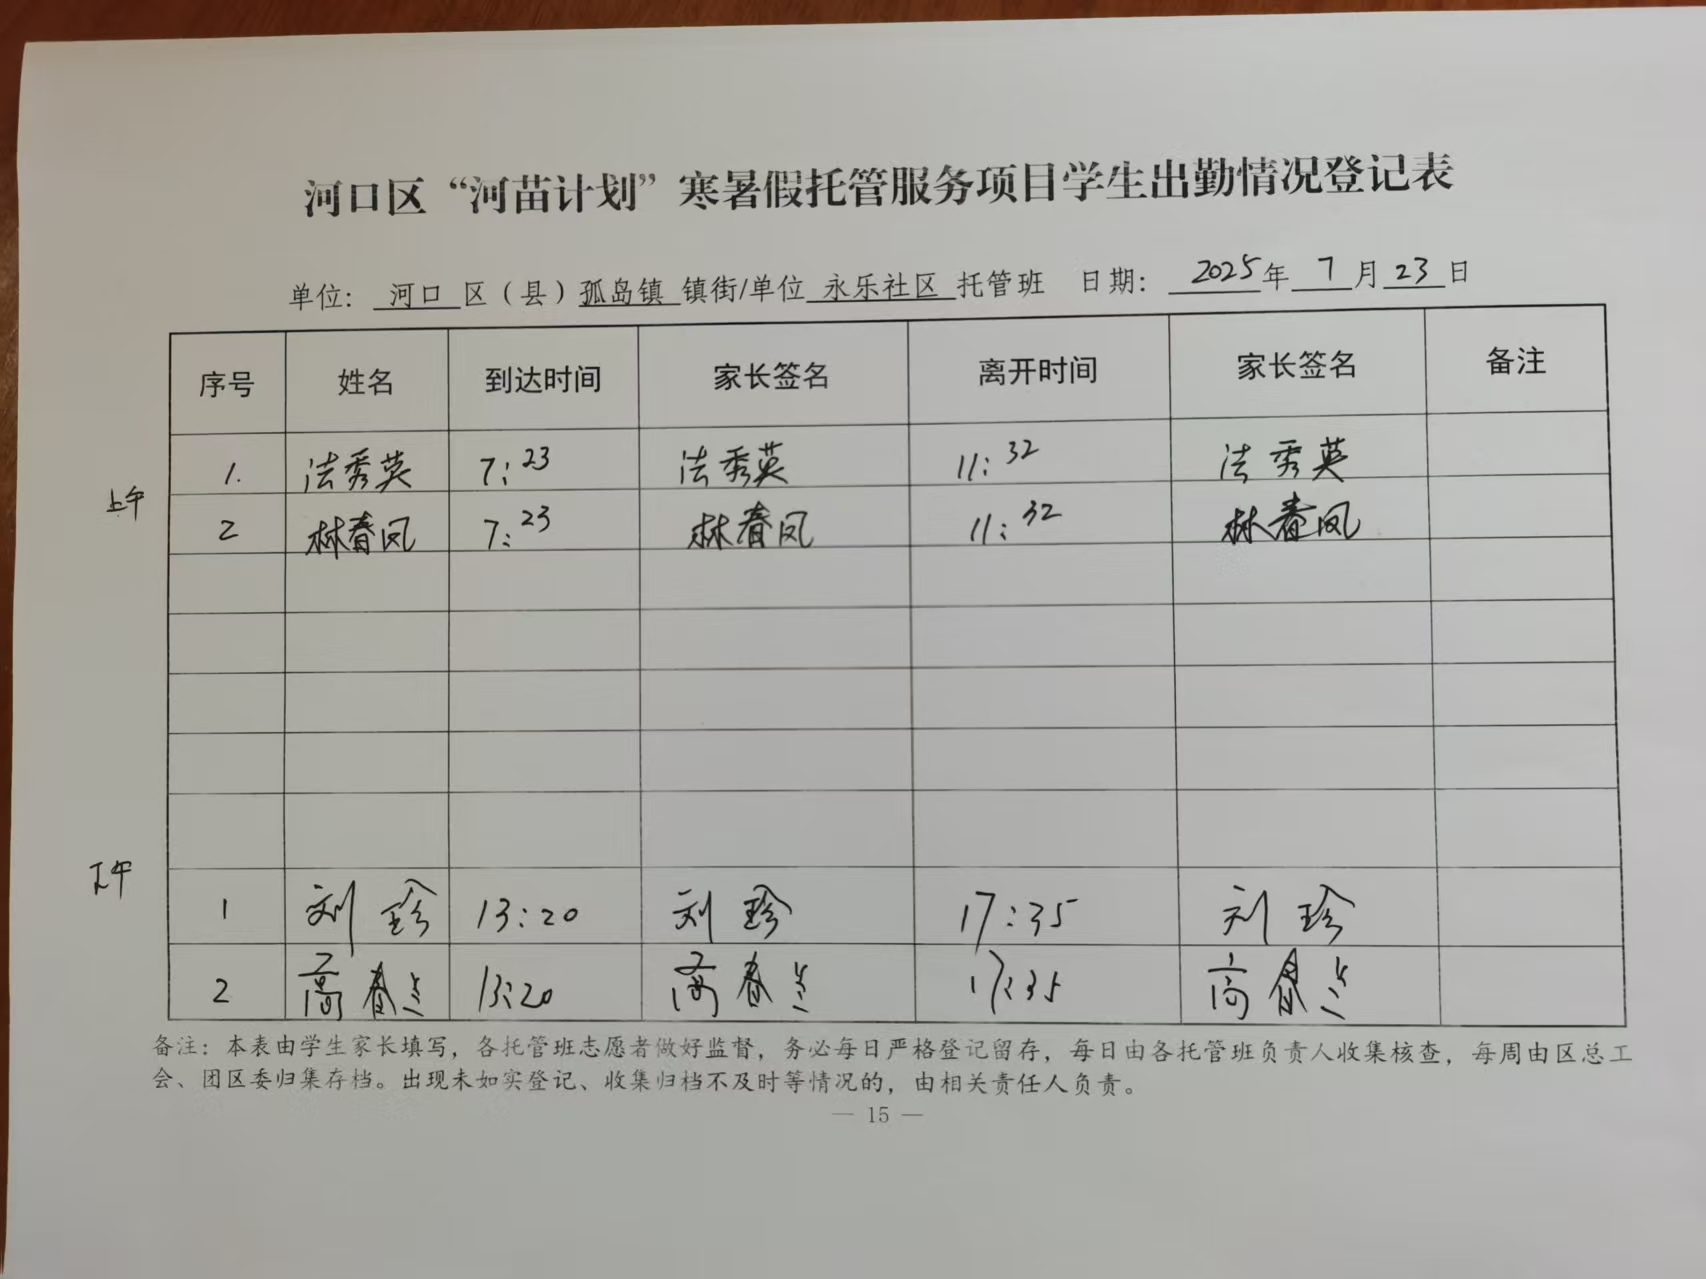 河口区“河苗计划”寒暑假托管服务项目学生出勤情况登记表
单位：河口区（县）孤岛镇镇街/单位永乐社区托管班 日期：2025年7月23日
序号 姓名 到达时间 家长签名 离开时间 家长签名 备注
上午
1. 法秀英 7:23 法秀英 11:32 法秀英
2 林春凤 7:23 林春凤 11:32 林春凤
下午
1 刘珍 13:20 刘珍 17:35 刘珍
2 高春兰 13:20 高春兰 17:35 高春兰
备注：本表由学生家长填写，各托管班志愿者做好监督，务必每日严格登记留存，每日由各托管班负责人收集核查，每周由区总工
会、团区委归集存档。出现未如实登记、收集归档不及时等情况的，由相关责任人负责。
— 15 —